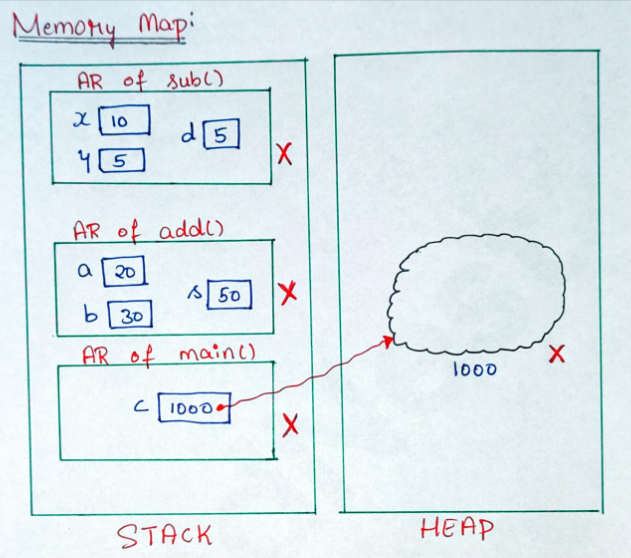 Memory Map:
AR of sub()
x 10
d 5
y 5
X
AR of add()
a 20
s 50
b 30
X
AR of main()
c 1000
X
1000
X
STACK
HEAP